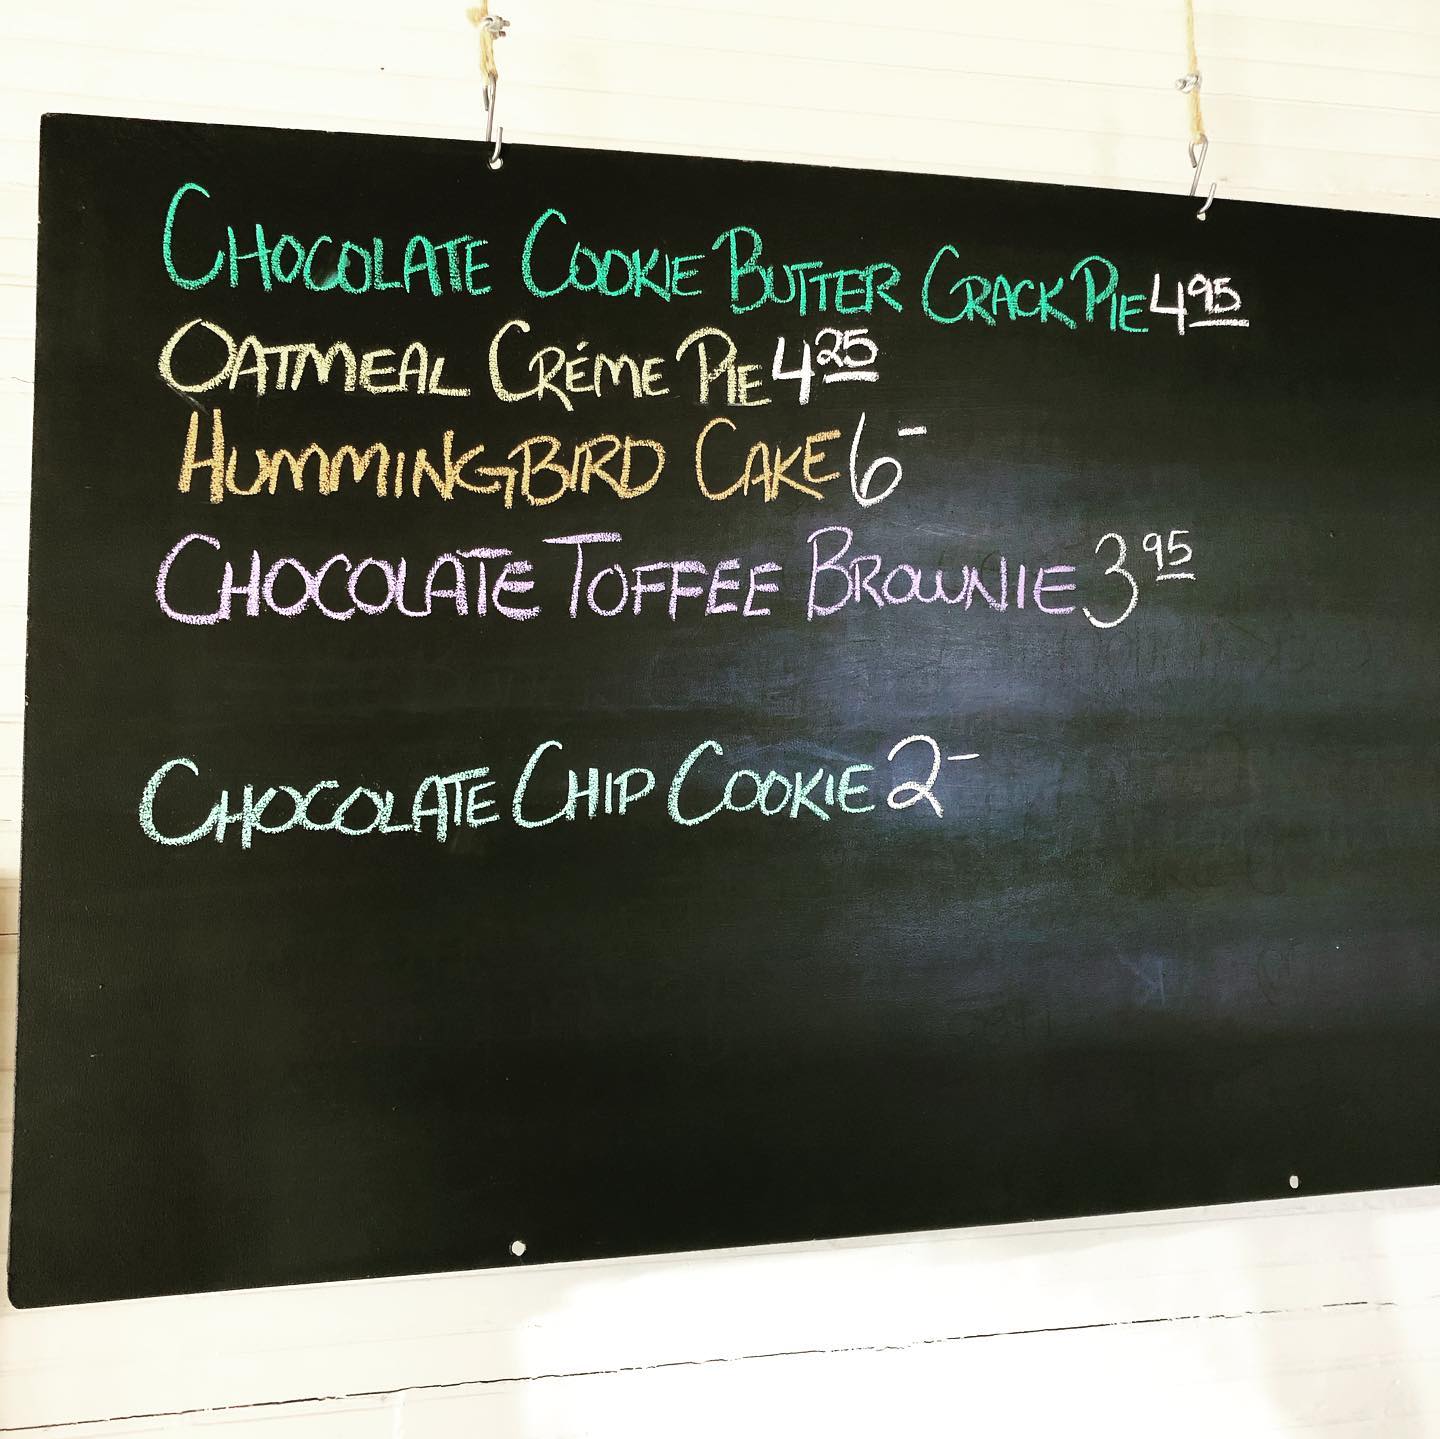 CHOCOLATE COOKIE BUTTER CRACK PIE 4 95
OATMEAL CRÉME PIE 4 25
HUMMINGBIRD CAKE 6-
CHOCOLATE TOFFEE BROWNIE 3 95
CHOCOLATE CHIP COOKIE 2-